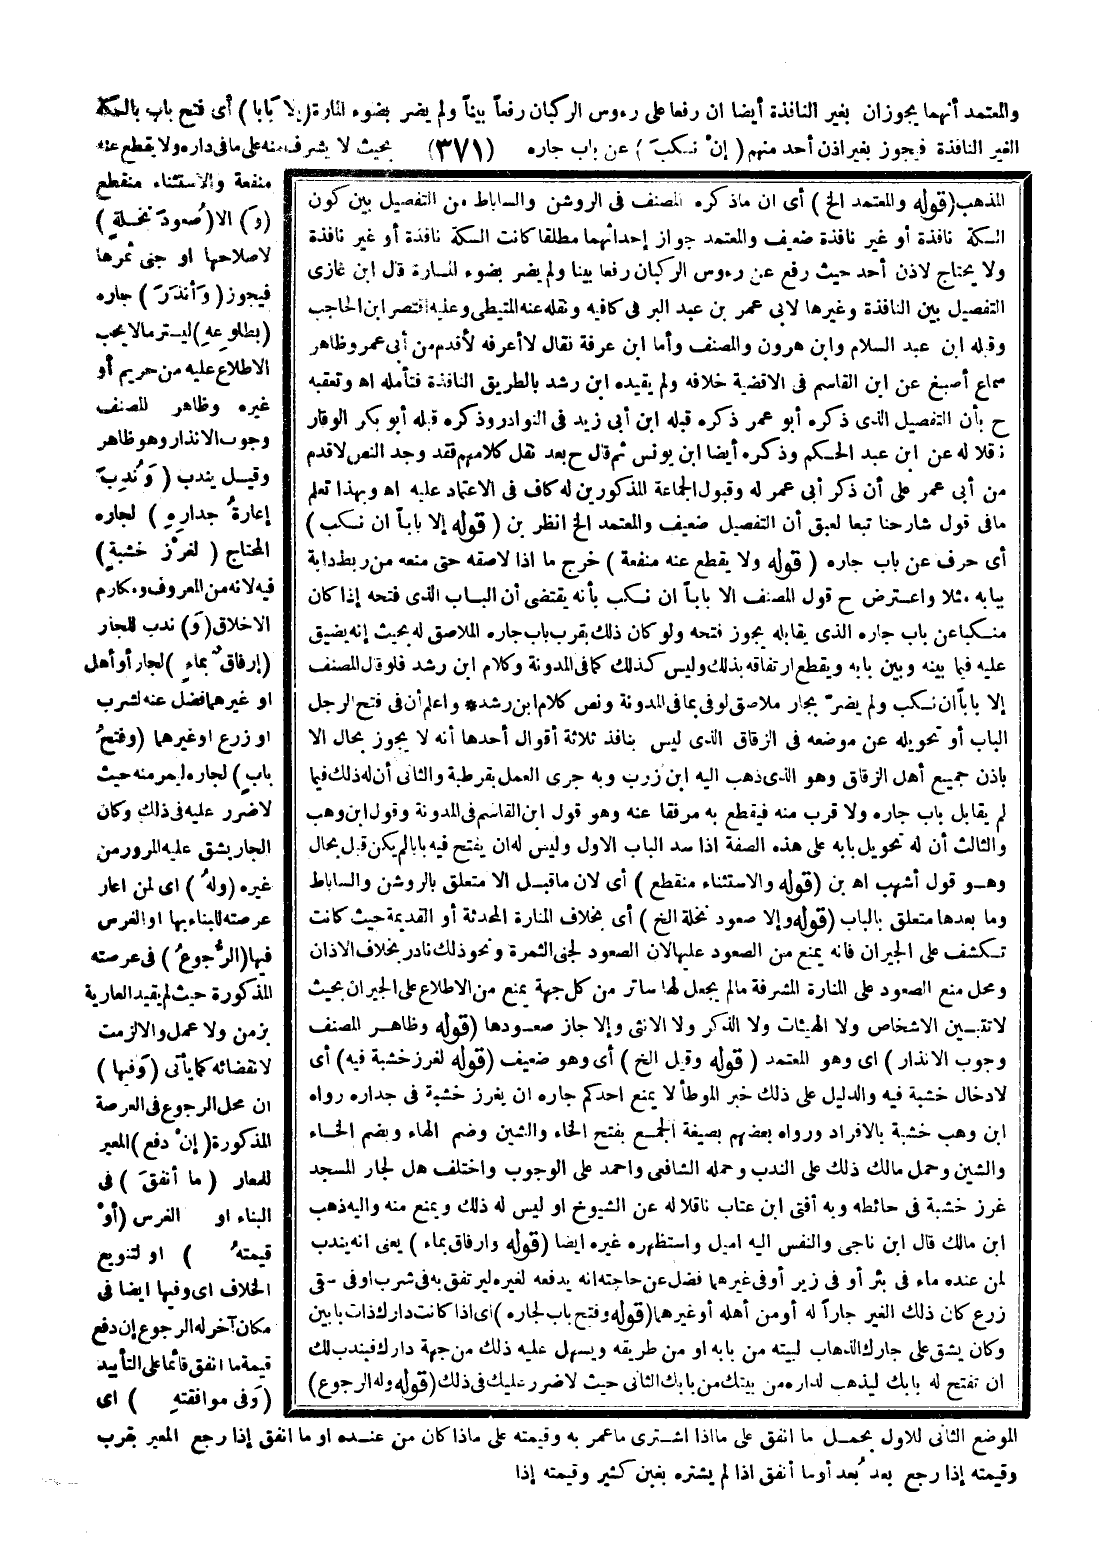 والمعتمد أنهما يجوزان بغير النافذة أيضا ان رفعا على رءوس الركبان رفعاً بيناً ولم يضر بضوء المارة (إلا بابا) أى فتح باب بالسكة
الغير النافذة فيجوز بغير اذن أحد منهم (إنْ نكبَ) عن باب جاره (٣٧١) بحيث لا يشرف منه على ما فى داره ولا يقطع عنه
منفعة والاستثناء منقطع
(وَ) الا (صُعودَ نخلةٍ)
لاصلاحها او جنى ثمرها
فيجوز (وَأنذرَ) جاره
(بطلوعِهِ) ليستر مالا يجب
الاطلاع عليه من حريم أو
غيره وظاهر المصنف
وجوب الانذار وهو ظاهر
وقيل يندب (وَنُدبَ
إعارةُ جدارِهِ) لجاره
المحتاج (لغرْز خشبةٍ)
فيه لانه من المعروف ومكارم
الاخلاق (وَ) ندب للجار
(إرفاقٌ بماءٍ) لجار أو أهل
او غيرهما فضل عنه لشرب
او زرع او غيرهما (وفتحُ
بابٍ) لجاره ليمر منه حيث
لا ضرر عليه فى ذلك وكان
الجار يشق عليه المرور من
غيره (ولهُ) اى لمن اعار
عرصته للبناء بها او الغرس
فيها (الرُّجوعُ) فى عرصته
المذكورة حيث لم يقيد العارية
بزمن ولا عمل والا لزمت
لانقضائه كما يأتى (وَفيها)
ان محل الرجوع فى العرصة
المذكورة (إنْ دفع) المعير
للمعار (ما أنفقَ) فى
البناء او الغرس (أوْ
قيمتهُ) او لتنويع
الخلاف اى وفيها ايضا فى
مكان آخر له الرجوع إن دفع
قيمة ما انفق قائما على التأبيد
(وَفى موافقتهِ) اى
المذهب (قوله والمعتمد الخ) أى ان ماذكره المصنف فى الروشن والساباط من التفصيل بين كون
السكة نافذة أو غير نافذة ضعيف والمعتمد جواز إحداثهما مطلقا كانت السكة نافذة أو غير نافذة
ولا يحتاج لاذن أحد حيث رفع عن رءوس الركبان رفعا بينا ولم يضر بضوء المارة قال ابن غازى
التفصيل بين النافذة وغيرها لابى عمر بن عبد البر فى كافيه ونقله عنه المتيطى وعليه اقتصر ابن الحاجب
وقبله ابن عبد السلام وابن هرون والمصنف وأما ابن عرفة فقال لا أعرفه لأقدم من أبى عمر وظاهر
سماع أصبغ عن ابن القاسم فى الاقضية خلافه ولم يقيده ابن رشد بالطريق النافذة فتأمله اه وتعقبه
ح بأن التفصيل الذى ذكره أبو عمر ذكره قبله ابن أبى زيد فى النوادر وذكره قبله أبو بكر الوقار
ناقلا له عن ابن عبد الحكم وذكره أيضا ابن يونس ثم قال ح بعد نقل كلامهم فقد وجد النص لاقدم
من أبى عمر على أن ذكر أبى عمر له وقبول الجماعة المذكورين له كاف فى الاعتماد عليه اه وبهذا تعلم
مافى قول شارحنا تبعا لعبق أن التفصيل ضعيف والمعتمد الخ انظر بن (قوله إلا باباً ان نكب)
أى حرف عن باب جاره (قوله ولا يقطع عنه منفعة) خرج ما اذا لاصقه حتى منعه من ربط دابة
ببابه مثلا واعترض ح قول المصنف الا باباً ان نكب بأنه يقتضى أن الباب الذى فتحه إذا كان
منكبا عن باب جاره الذى يقابله يجوز فتحه ولو كان ذلك بقرب باب جاره الملاصق له بحيث إنه يضيق
عليه فيما بينه وبين بابه ويقطع ارتفاقه بذلك وليس كذلك كما فى المدونة وكلام ابن رشد فلو قال المصنف
إلا باباً ان نكب ولم يضرّ بجار ملاصق لوفى بما فى المدونة ونص كلام ابن رشد* واعلم أن فى فتح الرجل
الباب أو تحويله عن موضعه فى الزقاق الذى ليس بنافذ ثلاثة أقوال أحدها أنه لا يجوز بحال الا
باذن جميع أهل الزقاق وهو الذى ذهب اليه ابن زرب وبه جرى العمل بقرطبة والثانى أن له ذلك فيما
لم يقابل باب جاره ولا قرب منه فيقطع به مرفقا عنه وهو قول ابن القاسم فى المدونة وقول ابن وهب
والثالث أن له تحويل بابه على هذه الصفة اذا سد الباب الاول وليس له ان يفتح فيه بابا لم يكن قبل بحال
وهو قول أشهب اه بن (قوله والاستثناء منقطع) أى لان ماقبل الا متعلق بالروشن والساباط
وما بعدها متعلق بالباب (قوله وإلا صعود نخلة الخ) أى بخلاف المنارة المحدثة أو القديمة حيث كانت
تكشف على الجيران فانه يمنع من الصعود عليها لان الصعود لجنى الثمرة ونحو ذلك نادر بخلاف الاذان
ومحل منع الصعود على المنارة المشرفة مالم يجعل لها ساتر من كل جهة يمنع من الاطلاع على الجيران بحيث
لا تتبين الاشخاص ولا الهيئات ولا الذكر ولا الانثى وإلا جاز صعودها (قوله وظاهر المصنف
وجوب الانذار) اى وهو المعتمد (قوله وقيل الخ) أى وهو ضعيف (قوله لغرز خشبة فيه) أى
لادخال خشبة فيه والدليل على ذلك خبر الموطأ لا يمنع احدكم جاره ان يغرز خشبة فى جداره رواه
ابن وهب خشبة بالافراد ورواه بعضهم بصيغة الجمع بفتح الخاء والشين وضم الهاء وبضم الخاء
والشين وحمل مالك ذلك على الندب وحمله الشافعى واحمد على الوجوب واختلف هل لجار المسجد
غرز خشبة فى حائطه وبه أفتى ابن عتاب ناقلا له عن الشيوخ او ليس له ذلك ويمنع منه واليه ذهب
ابن مالك قال ابن ناجى والنفس اليه اميل واستظهره غيره ايضا (قوله وارفاق بماء) يعنى انه يندب
لمن عنده ماء فى بئر أو فى زير أو فى غيرهما فضل عن حاجته انه يدفعه لغيره ليرتفق به فى شرب او فى سقى
زرع كان ذلك الغير جاراً له أو من أهله أو غيرهما (قوله وفتح باب لجاره) اى اذا كانت دارك ذات بابين
وكان يشق على جارك الذهاب لبيته من بابه او من طريقه ويسهل عليه ذلك من جهة دارك فيندب لك
ان تفتح له بابك ليذهب لداره من بيتك من بابك الثانى حيث لا ضرر عليك فى ذلك (قوله وله الرجوع)
الموضع الثانى للاول بحمل ما انفق على مااذا اشترى ماعمر به وقيمته على ماذا كان من عنده او ما انفق إذا رجع المعير بقرب
وقيمته إذا رجع بعد بُعد أوما أنفق اذا لم يشتره بغبن كثير وقيمته إذا